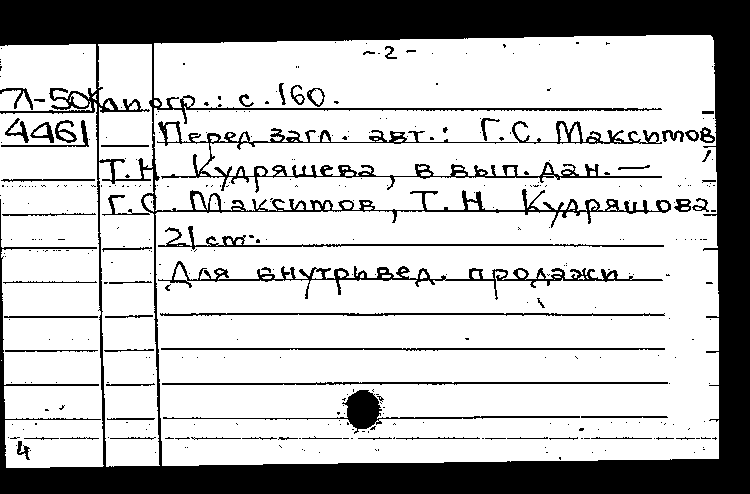 - 2 -
71-50 Капогр.: с. 160.
4461 Перед загл. авт.: Г.С. Максимов,
Т.Н. Кудряшева, в вып. дан. —
Г.С. Максимов, Т.Н. Кудряшова.
21 cm.
Для внутривед. продажи.
4